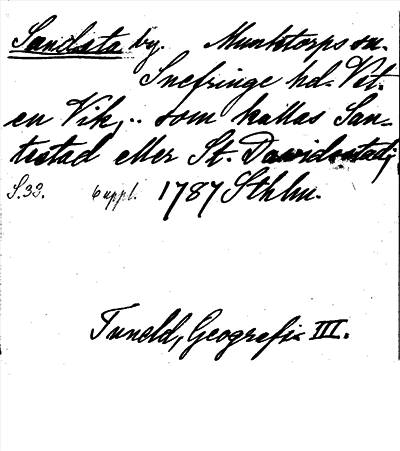 Sandsta by. Munktorps sn.
Snefringe hd. Vstm.
en Vik, .. som kallas San-
testad eller St. Davidsstad;
S.33. Cuppl. 1787 Sthlm.
Tuneld, Geografi III.